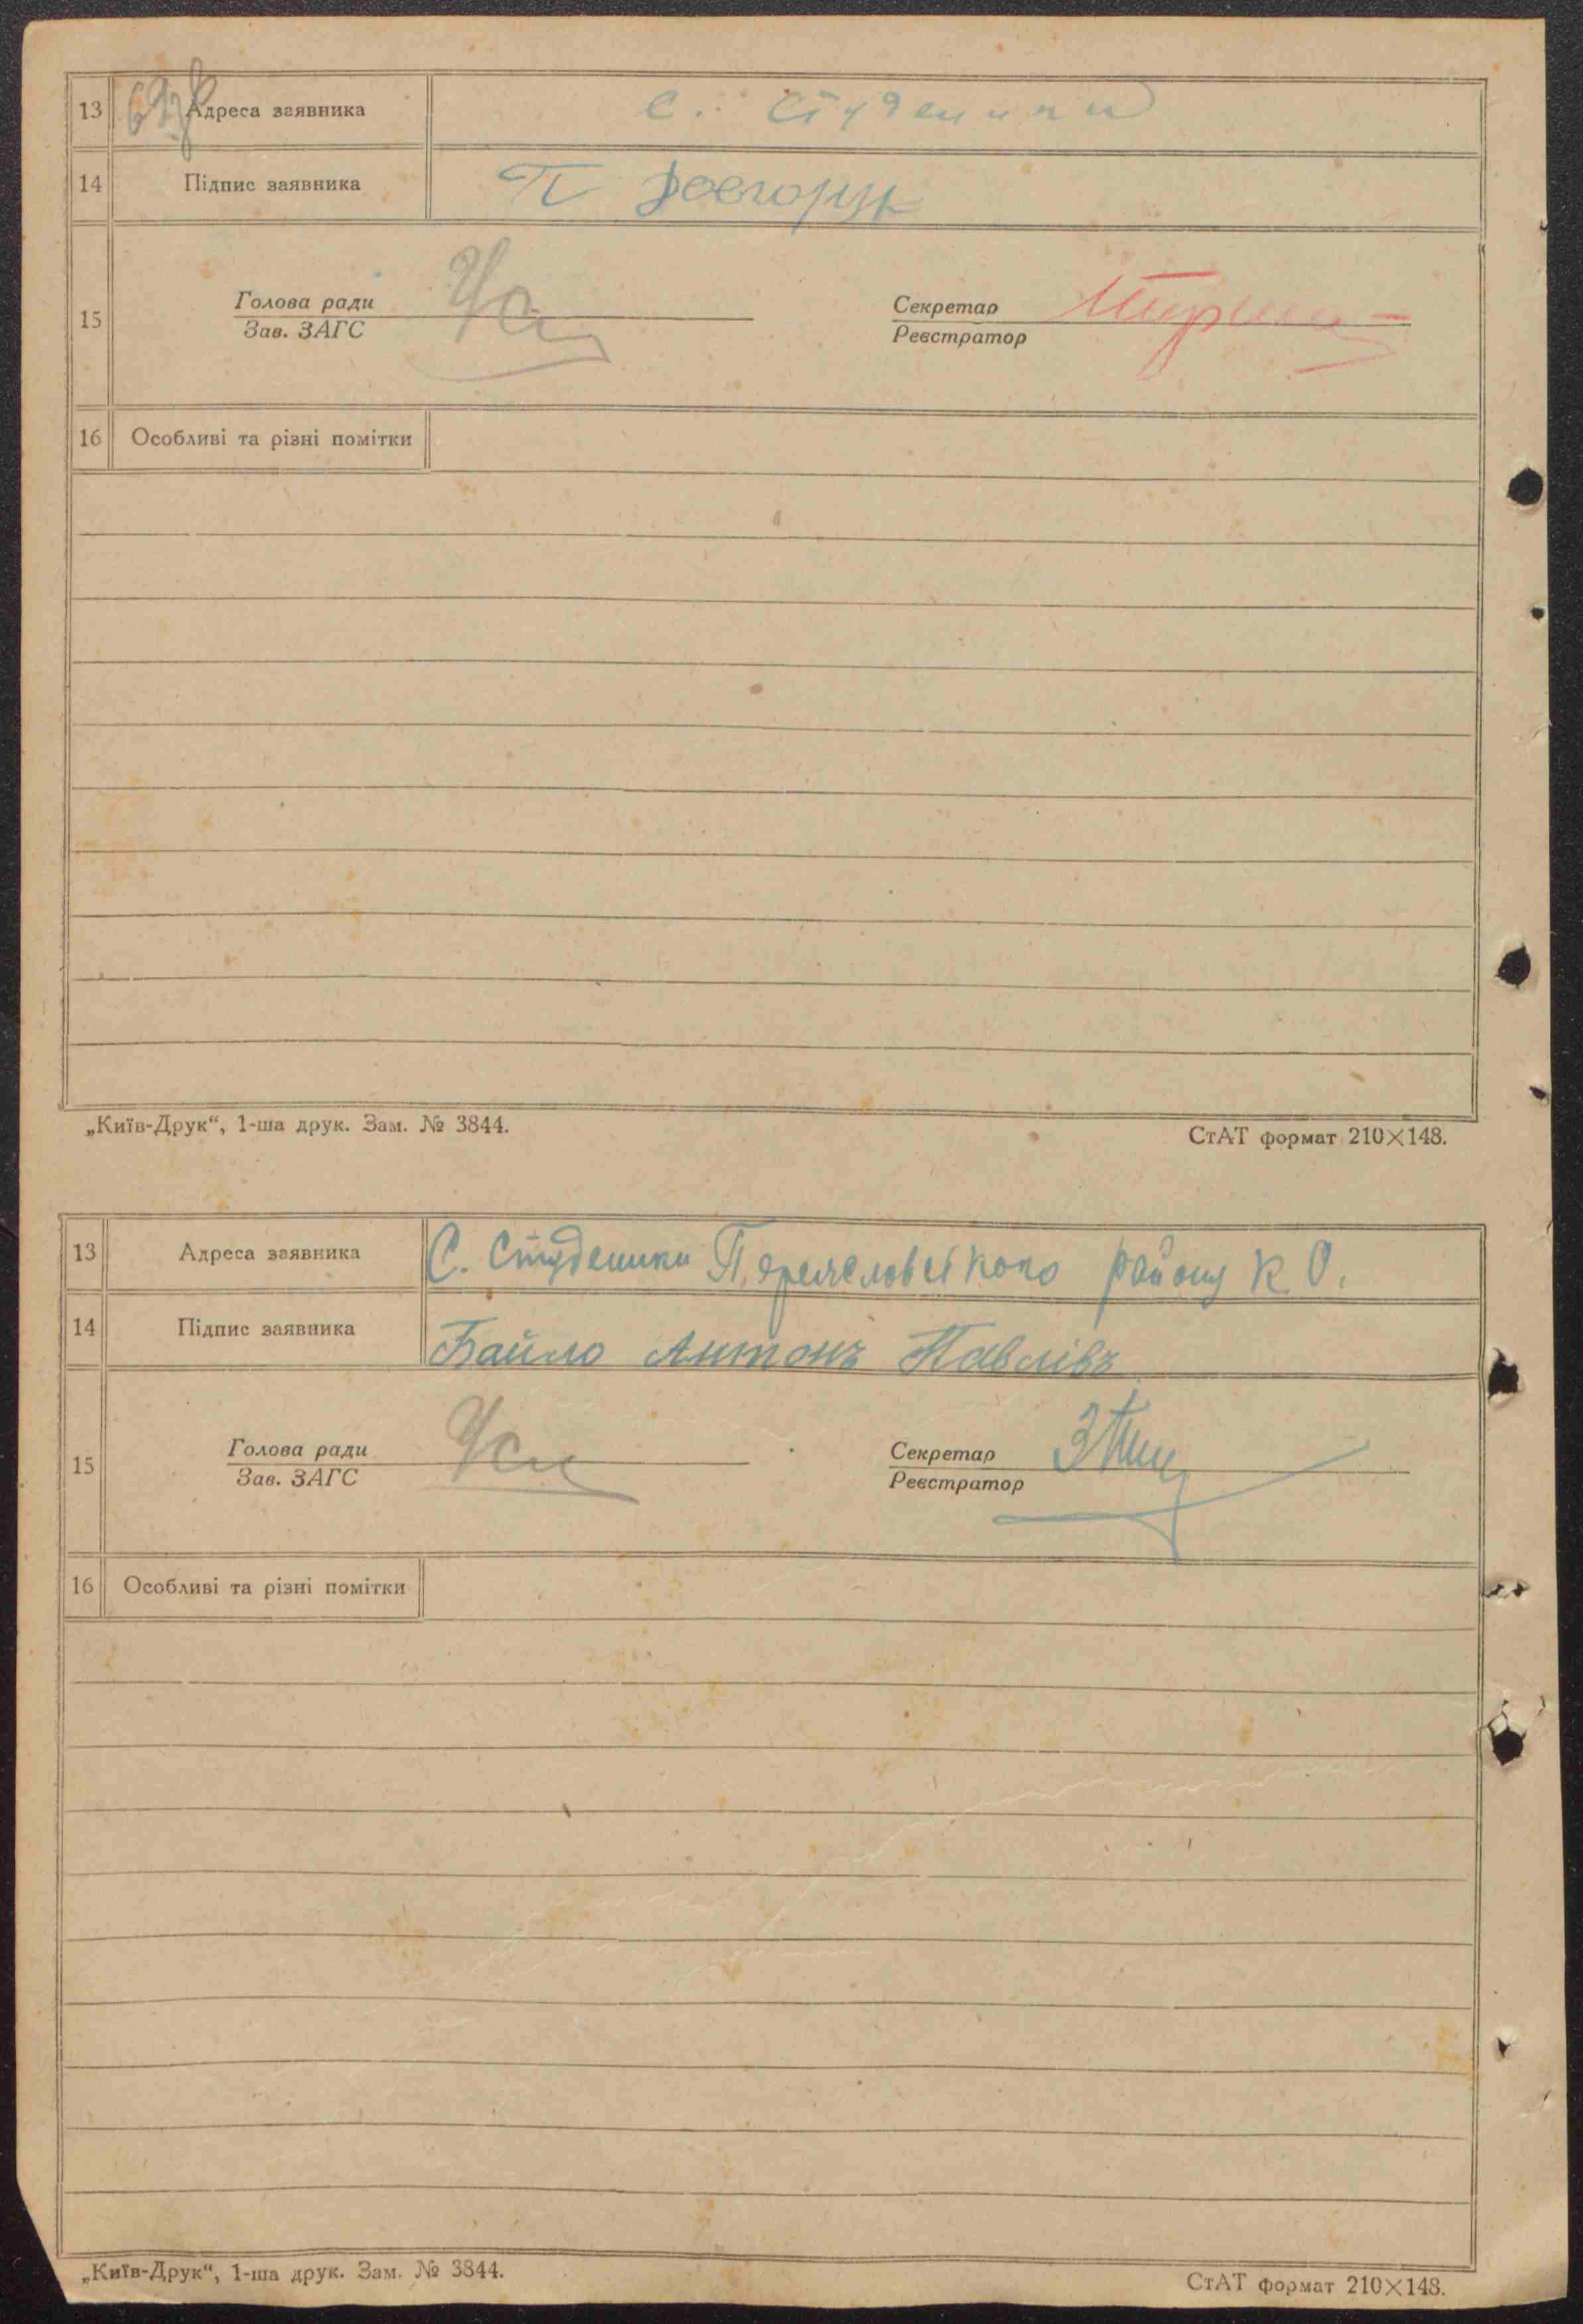 13 Адреса заявника с. Студеники
14 Підпис заявника П Довгорук
15 Голова ради Секретар
Зав. ЗАГС Реєстратор
16 Особливі та різні помітки
„Київ-Друк“, 1-ша друк. Зам. № 3844. СтАТ формат 210×148.
13 Адреса заявника С. Студеники Переяславського району К. О.
14 Підпис заявника Байло Антонъ Павлівъ
15 Голова ради Секретар
Зав. ЗАГС Реєстратор
16 Особливі та різні помітки
„Київ-Друк“, 1-ша друк. Зам. № 3844. СтАТ формат 210×148.